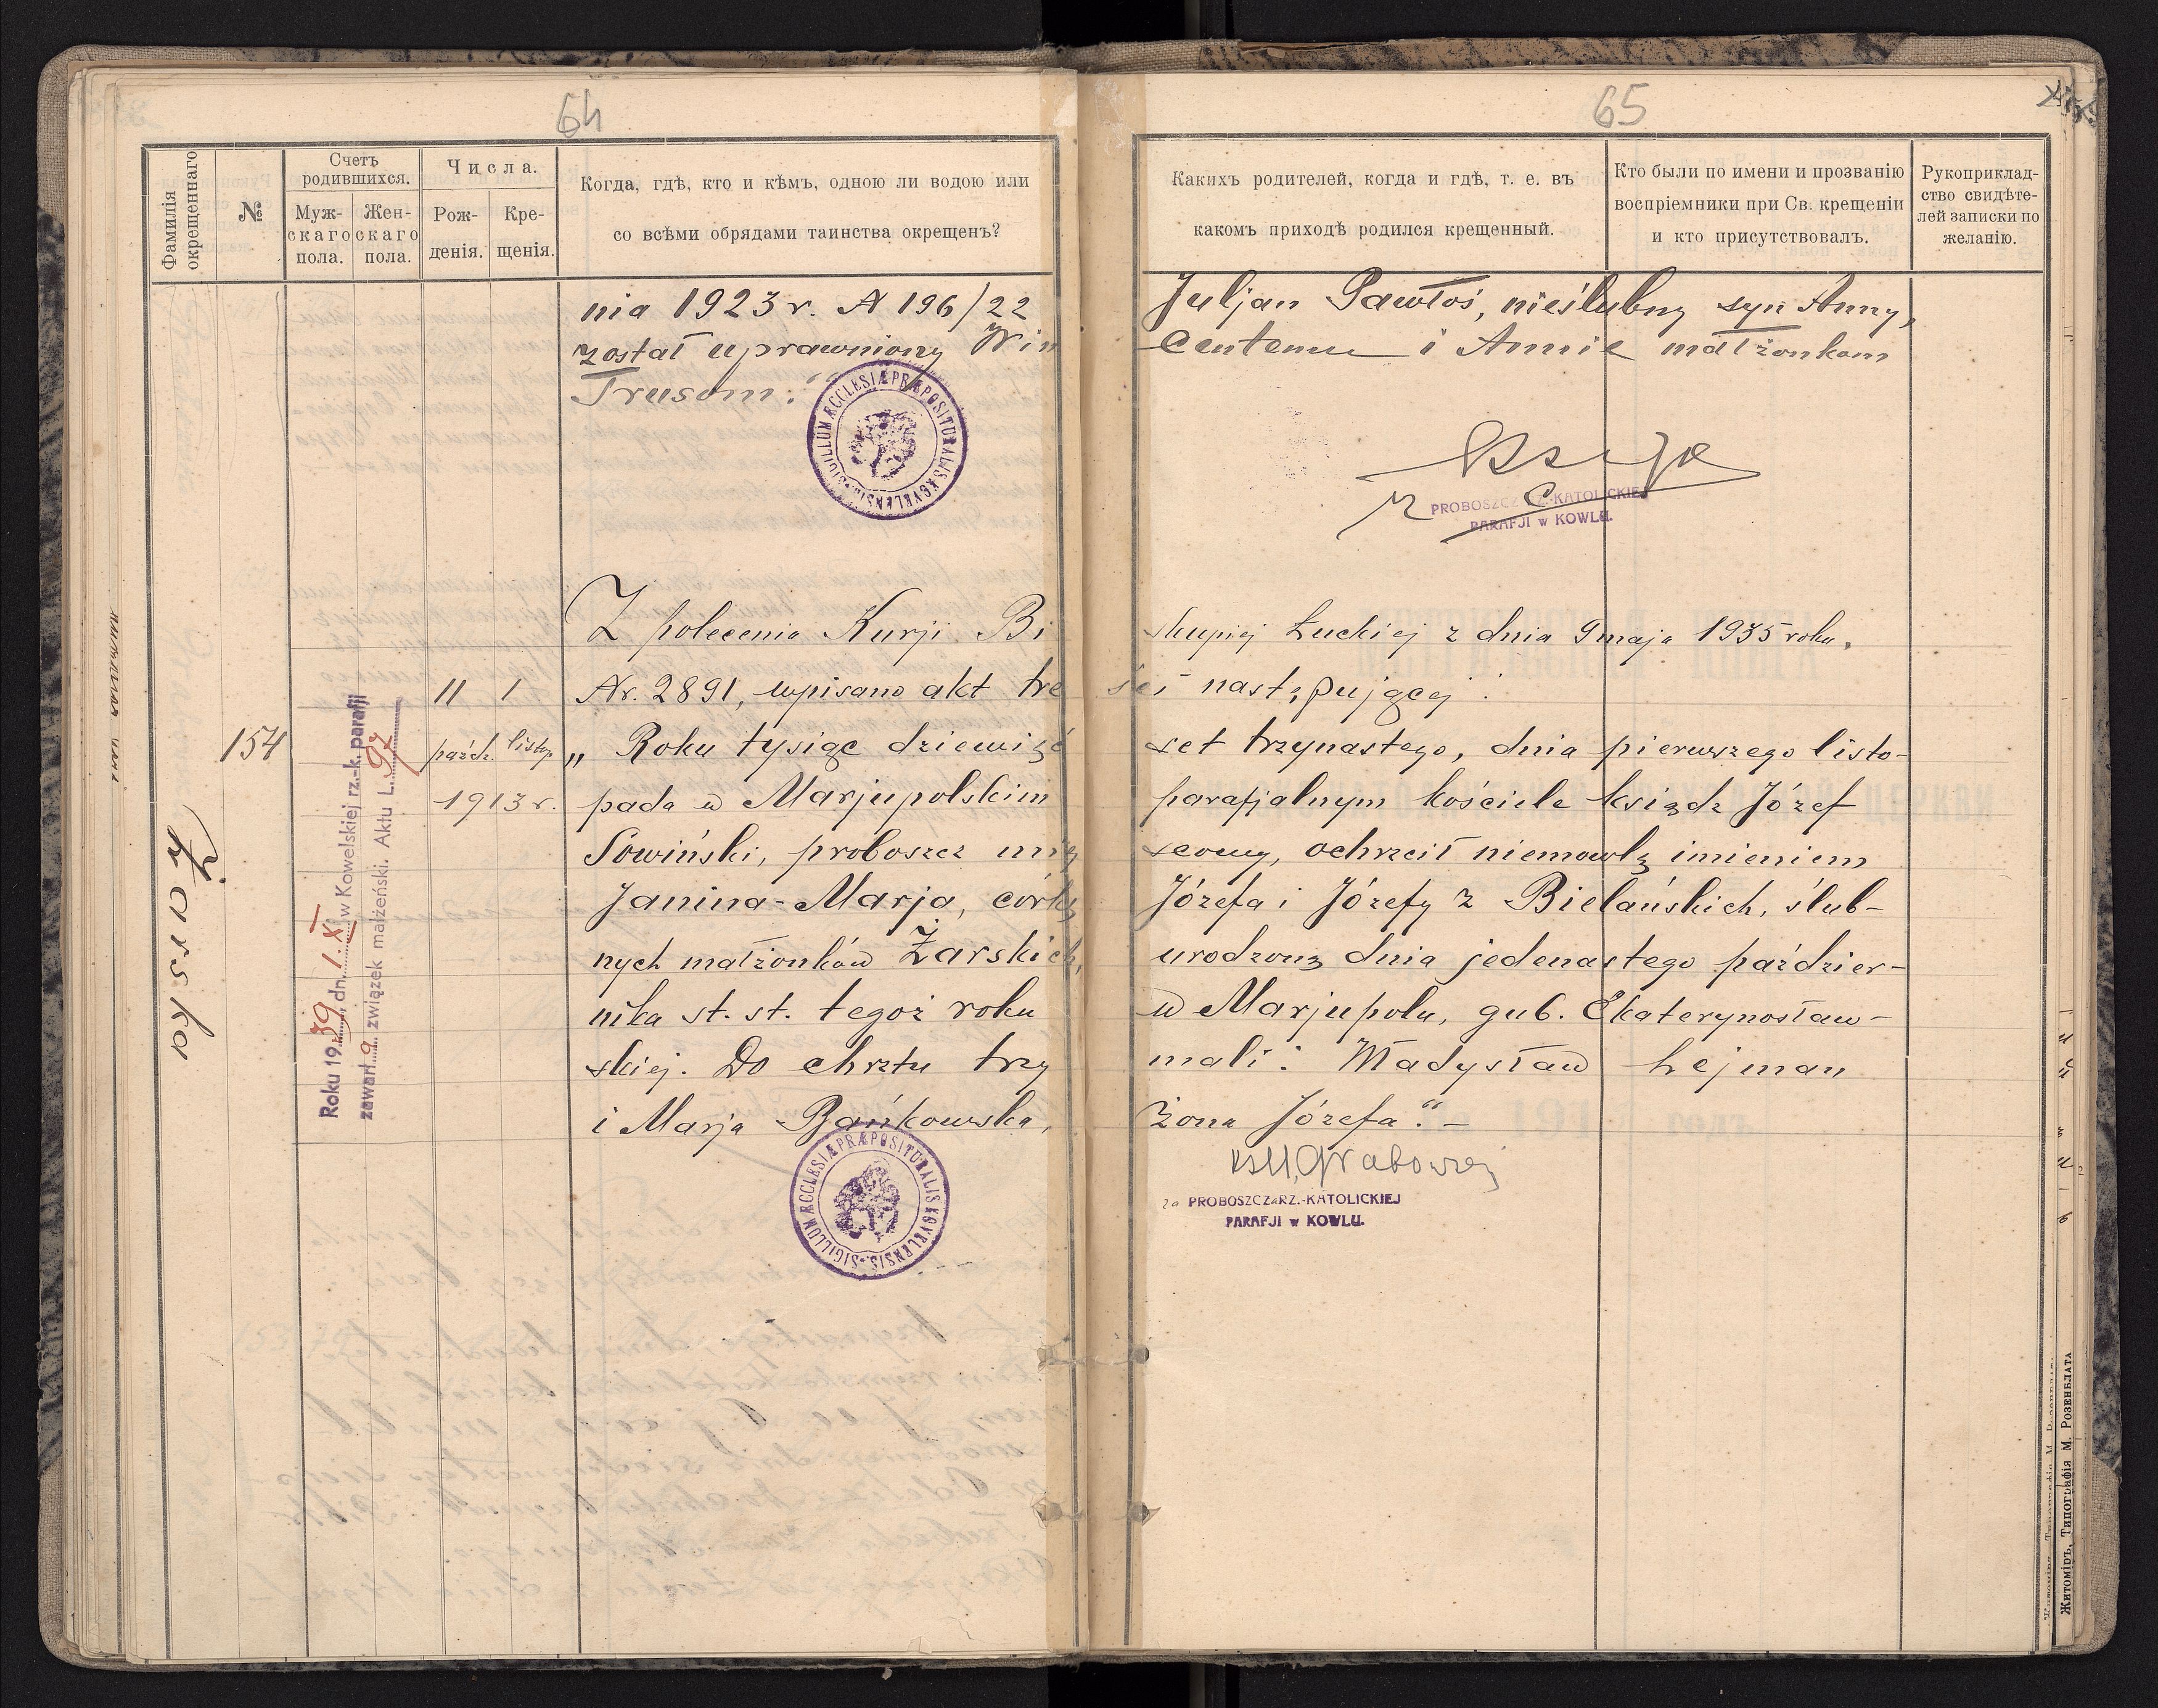 64
65
Фамилія окрещеннаго
№
Счетъ родившихся.
Муж- скаго пола.
Жен- скаго пола.
Числа.
Рож- денія.
Кре- щенія.
Когда, гдѣ, кто и кѣмъ, одною ли водою или
со всѣми обрядами таинства окрещенъ?
Какихъ родителей, когда и гдѣ, т. е. въ
какомъ приходѣ родился крещенный.
Кто были по имени и прозванію
воспріемники при Св. крещеніи
и кто присутствовалъ.
Рукоприклад-
ство свидѣте-
лей записки по
желанію.
nia 1923 r. N 196/22 Juljan Pawłoś, nieślubny syn Anny,
został uprawniony Win centemu i Annie małżonkom
Trusom."
SIGILLUM ÆCCLESIÆ PRÆPOSITURALIS KOVELENSIS
PROBOSZCZ RZ.-KATOLICKIEJ
PARAFJI w KOWLU.
Z polecenia Kurji Bi skupiej Łuckiej z dnia 9 maja 1935 roku,
11 1 Nr. 2891, wpisano akt tre ści następującej:
154 paźdz. listop. „ Roku tysiąc dziewięć set trzynastego, dnia pierwszego listo-
1913 r. pada w Marjupolskim parafjalnym kościele ksiądz Józef
Sowiński, proboszcz miej scowy, ochrzcił niemowlę imieniem
Janina-Marja, córkę Józefa i Józefy z Bielańskich, ślub-
nych małżonków Żarskich, urodzoną dnia jedenastego paździer-
nika st. st. tegoż roku w Marjupolu, gub. Ekaterynosław-
skiej. Do chrztu trzy mali: Władysław Lejman
i Marja Bańkowska, żona Józefa."-
Żarska
Roku 1939 dn. 1.XI w Kowelskiej rz.-k. parafji
zawarła związek małżeński. Aktu L. 97
SIGILLUM ÆCCLESIÆ PRÆPOSITURALIS KOVELENSIS
za PROBOSZCZA RZ.-KATOLICKIEJ
PARAFJI w KOWLU.
Житоміръ, Типографія М. Розенблата